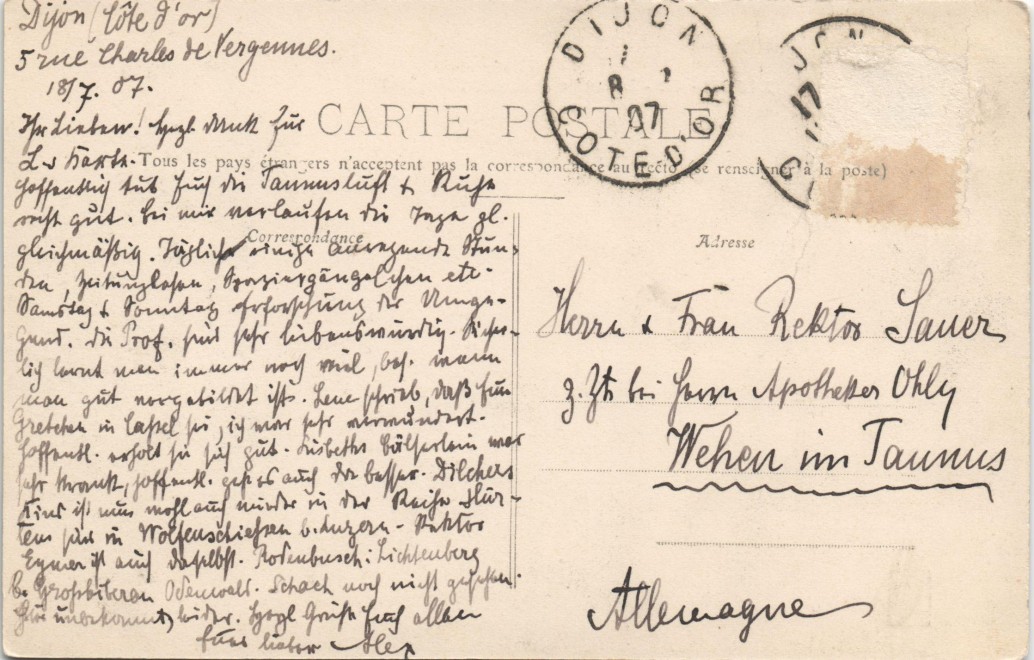 Dijon (Côte d'or)
5 rue Charles de Vergennes.
18/7. 07.
CARTE POSTALE
Tous les pays étrangers n'acceptent pas la correspondance au recto (se renseigner à la poste)
Correspondance
Adresse
DIJON
8
07
COTE-D'OR
JON
Ihr Lieben! Herzl. Dank für
L.s Karte.
Hoffentlich tut Euch die Taunusluft & Ruhe
recht gut. Bei mir verlaufen die Tage gl.
gleichmäßig. Täglich einige anregende Stun-
den, Zeitunglesen, Spaziergängelchen etc.
Samstag & Sonntag Erforschung der Umge-
gend. Die Prof. sind sehr liebenswürdig. Sicher-
lich lernt man immer noch viel, bes. wenn
man gut vorgebildet ist. Lene schrieb, daß Eure
Gretchen in Cassel sei, ich war sehr verwundert.
Hoffentl. erholt sie sich gut. Lisbeths war
sehr krank, hoffentl. geht es auch da besser. Dilchers
Kind ist nun wohl auch wieder in der Reihe.
sind in Wolfenschiessen b. Luzern. Rektor
Eymer ist auch daselbst. Rodenbusch: Lichtenberg
b. Grossbieberau Odenwald. Schach noch nicht gesehen.
Hier unbekannt, leider. Herzl. Grüße Euch allen
Euer lieber Alex
Herrn & Frau Rektor Sauer
z. Zt. bei Herrn Apotheker Ohly
Wehen im Taunus
Allemagne